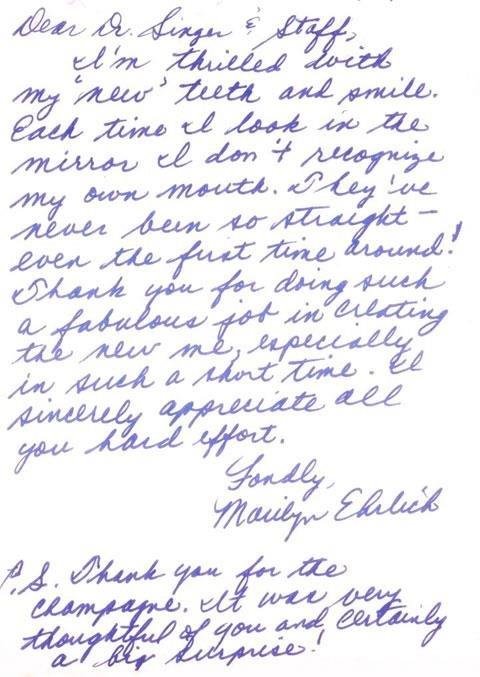 Dear Dr. Singer & Staff,
I'm thrilled with
my 'new' teeth and smile.
Each time I look in the
mirror I don't recognize
my own mouth. They've
never been so straight –
even the first time around!
Thank you for doing such
a fabulous job in creating
the new me, especially
in such a short time. I
sincerely appreciate all
you hard effort.
Fondly,
Marilyn Ehrlich
P.S. Thank you for the
champagne. It was very
thoughtful of you and certainly
a big surprise!